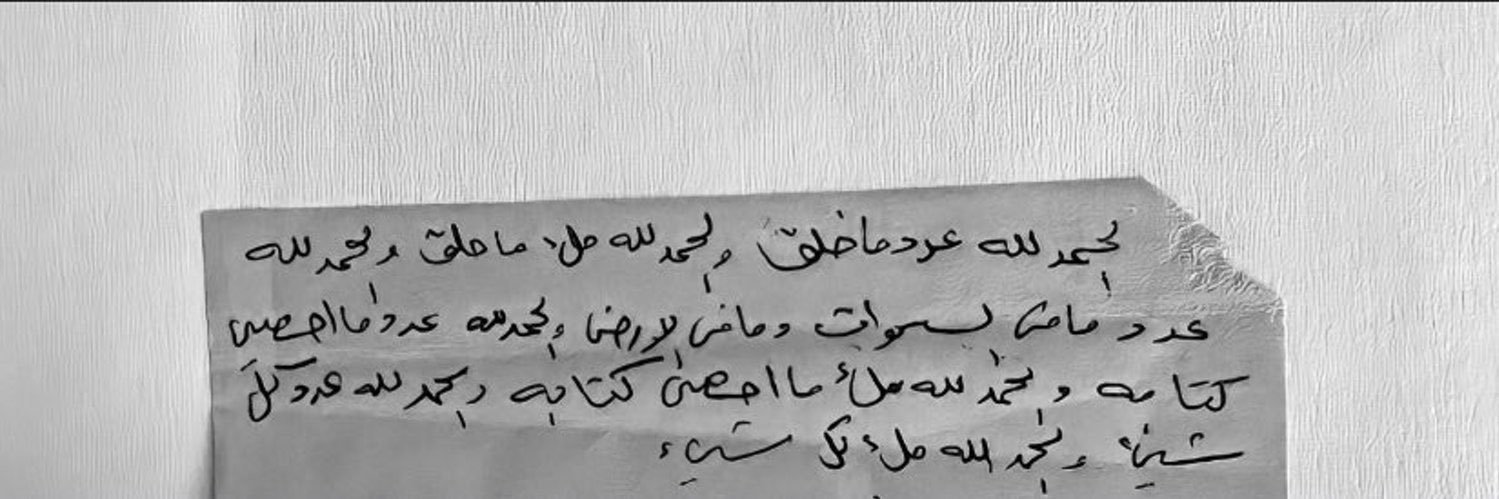 الحمد لله عدد ما خلق والحمد لله ملء ما خلق والحمد لله
عدد ما في السموات وما في الارض والحمد لله عدد ما احصى
كتابه والحمد لله ملأ ما احصى كتابه والحمد لله عدد كل
شيئ والحمد الله ملء كل شيء